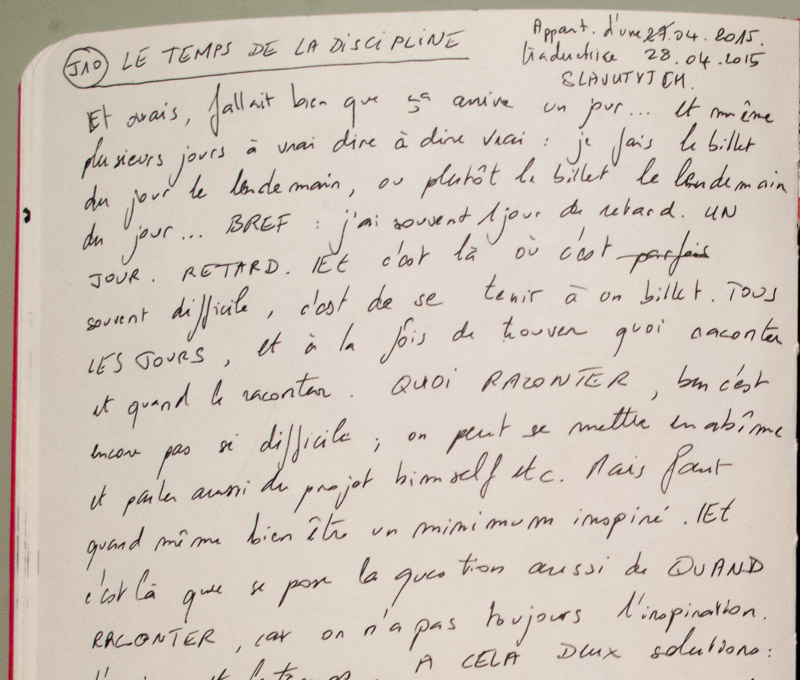 J10 LE TEMPS DE LA DISCIPLINE
Appart. d'une 27.04.2015.
traductrice 28.04.2015
SLAVUTYTCH.
Et ouais, fallait bien que ça arrive un jour... Et même
plusieurs jours à vrai dire à dire vrai : je fais le billet
du jour le lendemain, ou plutôt le billet le lendemain
du jour... BREF : j'ai souvent 1 jour de retard. UN
JOUR. RETARD. Et c'est là où c'est parfois
souvent difficile, c'est de se tenir à un billet. TOUS
LES JOURS, et à la fois de trouver quoi raconter
et quand le raconter. QUOI RACONTER, ben c'est
encore pas si difficile ; on peut se mettre en abîme
et parler aussi du projet himself etc. Mais faut
quand même bien être un minimum inspiré. Et
c'est là que se pose la question aussi de QUAND
RACONTER, car on n'a pas toujours l'inspiration.
A CELA DEUX solutions: